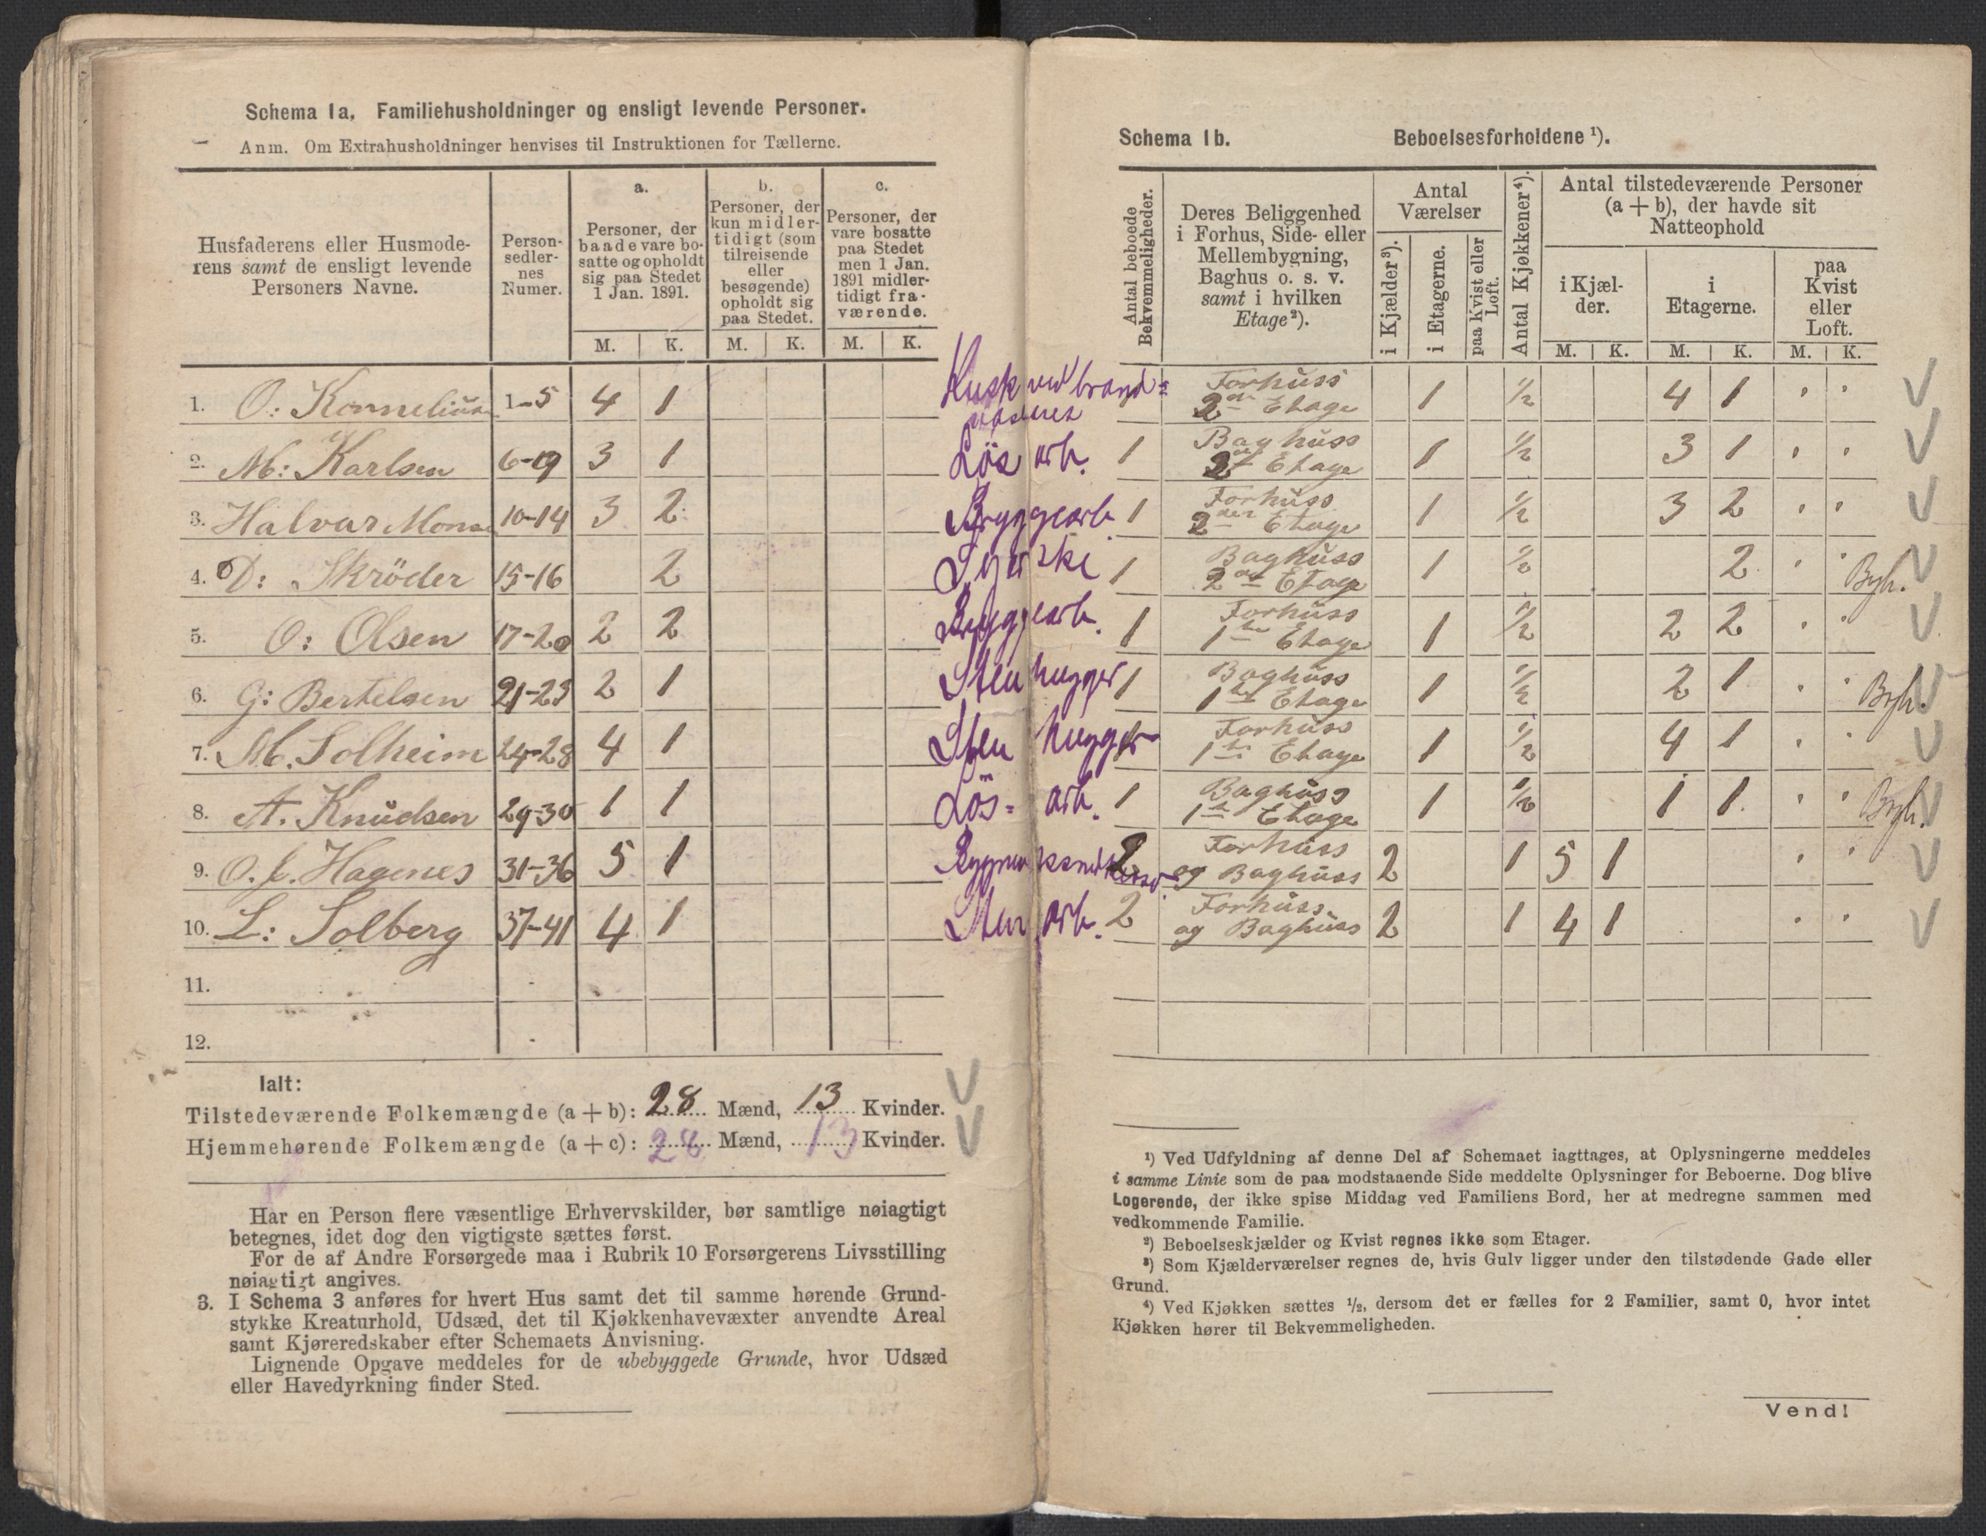 Schema 1a. Familiehusholdninger og ensligt levende Personer.
Anm. Om Extrahusholdninger henvises til Instruktionen for Tællerne.
Husfaderens eller Husmode-
rens samt de ensligt levende
Personers Navne.
Person-
sedler-
nes
Numer.
a.
Personer, der
baade vare bo-
satte og opholdt
sig paa Stedet
1 Jan. 1891.
b.
Personer, der
kun midler-
tidigt (som
tilreisende
eller
besøgende)
opholdt sig
paa Stedet.
c.
Personer, der
vare bosatte
paa Stedet
men 1 Jan.
1891 midler-
tidigt fra-
værende.
M. K. M. K. M. K.
1. O: Kornelius 1-5 4 1
2. M: Karlsen 6-09 3 1 Løs arb.
3. Halvar Mons 10-14 3 2 Bryggearb
4. D: Skröder 15-16 2 Syerske
5. O: Olsen 17-20 2 2 Bryggearb.
6. G: Bertelsen 21-23 2 1 Stenhugger
7. M. Solheim 24-28 4 1 Stenhugger
8. A. Knudsen 29-30 1 1 Løs-arb.
9. O. J. Hagenes 31-36 5 1
10. L: Solberg 37-41 4 1 Sten arb.
11.
12.
Ialt:
Tilstedeværende Folkemængde (a + b): 28 Mænd, 13 Kvinder.
Hjemmehørende Folkemængde (a + c): 28 Mænd, 13 Kvinder.
Har en Person flere væsentlige Erhvervskilder, bør samtlige nøiagtigt
betegnes, idet dog den vigtigste sættes først.
For de af Andre Forsørgede maa i Rubrik 10 Forsørgerens Livsstilling
nøiagtigt angives.
3. I Schema 3 anføres for hvert Hus samt det til samme hørende Grund-
stykke Kreaturhold, Udsæd, det til Kjøkkenhavevæxter anvendte Areal
samt Kjøreredskaber efter Schemaets Anvisning.
Lignende Opgave meddeles for de ubebyggede Grunde, hvor Udsæd
eller Havedyrkning finder Sted.
Schema 1b. Beboelsesforholdene ¹).
Antal beboede
Bekvemmeligheder.
Deres Beliggenhed
i Forhus, Side- eller
Mellembygning,
Baghus o. s. v.
samt i hvilken
Etage²).
Antal
Værelser
i Kjælder³).
i Etagerne.
paa Kvist eller
Loft.
Antal Kjøkkener⁴).
Antal tilstedeværende Personer
(a + b), der havde sit
Natteophold
i Kjæl-
der.
i
Etagerne.
paa
Kvist
eller
Loft.
M. K. M. K. M. K.
Forhuss
2den Etage 1 ½ 4 1
1 Baghuss
2 Etage 1 ½ 3 1
1 Forhuss
2den Etage 1 ½ 3 2
1 Baghuss
2 Etage 1 ½ 2 Byh.
1 Forhuss
1te Etage 1 ½ 2 2
1 Baghuss
1te Etage 1 ½ 2 1 Byh.
1 Forhuss
1te Etage 1 ½ 4 1
1 Baghuss
1te Etage 1 ½ 1 1 Byh.
2 Forhuss
og Baghuss 2 1 5 1
2 Forhuss
og Baghuss 2 1 4 1
¹) Ved Udfyldning af denne Del af Schemaet iagttages, at Oplysningerne meddeles
i samme Linie som de paa modstaaende Side meddelte Oplysninger for Beboerne. Dog blive
Logerende, der ikke spise Middag ved Familiens Bord, her at medregne sammen med
vedkommende Familie.
²) Beboelseskjælder og Kvist regnes ikke som Etager.
³) Som Kjælderværelser regnes de, hvis Gulv ligger under den tilstødende Gade eller
Grund.
⁴) Ved Kjøkken sættes ½, dersom det er fælles for 2 Familier, samt 0, hvor intet
Kjøkken hører til Bekvemmeligheden.
Vend!